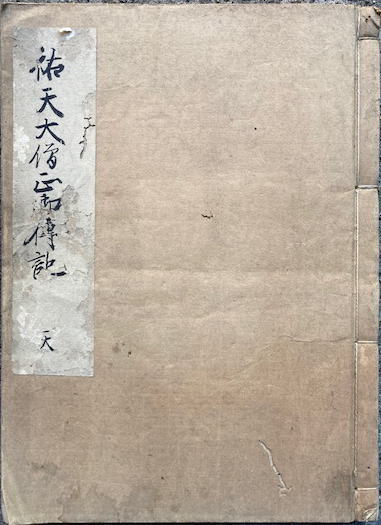 祐天大僧正御傳記
天